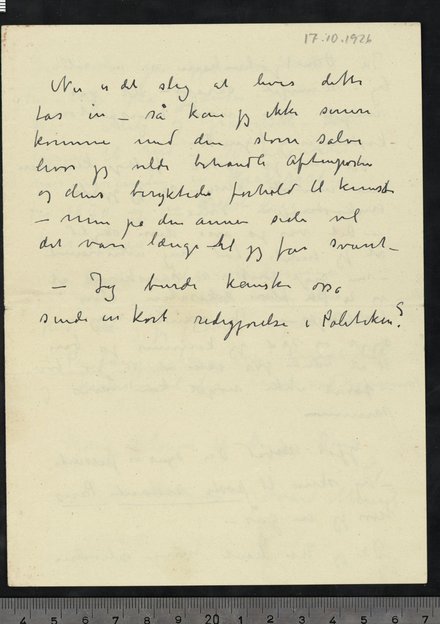 17.10.1926
Nu er det slig at hvis dette
tas inn – så kan jeg ikke senere
komme med den store salve
hvor jeg vilde behandle Aftenposten
og dens beryktede forhold til kunst
– men på den annen side vil
det vare længe til jeg får svart –
– Jeg burde kanske ossa
sende en kort redegjørelse i Politiken?
4 5 6 7 8 9 20 1 2 3 4 5 6 7